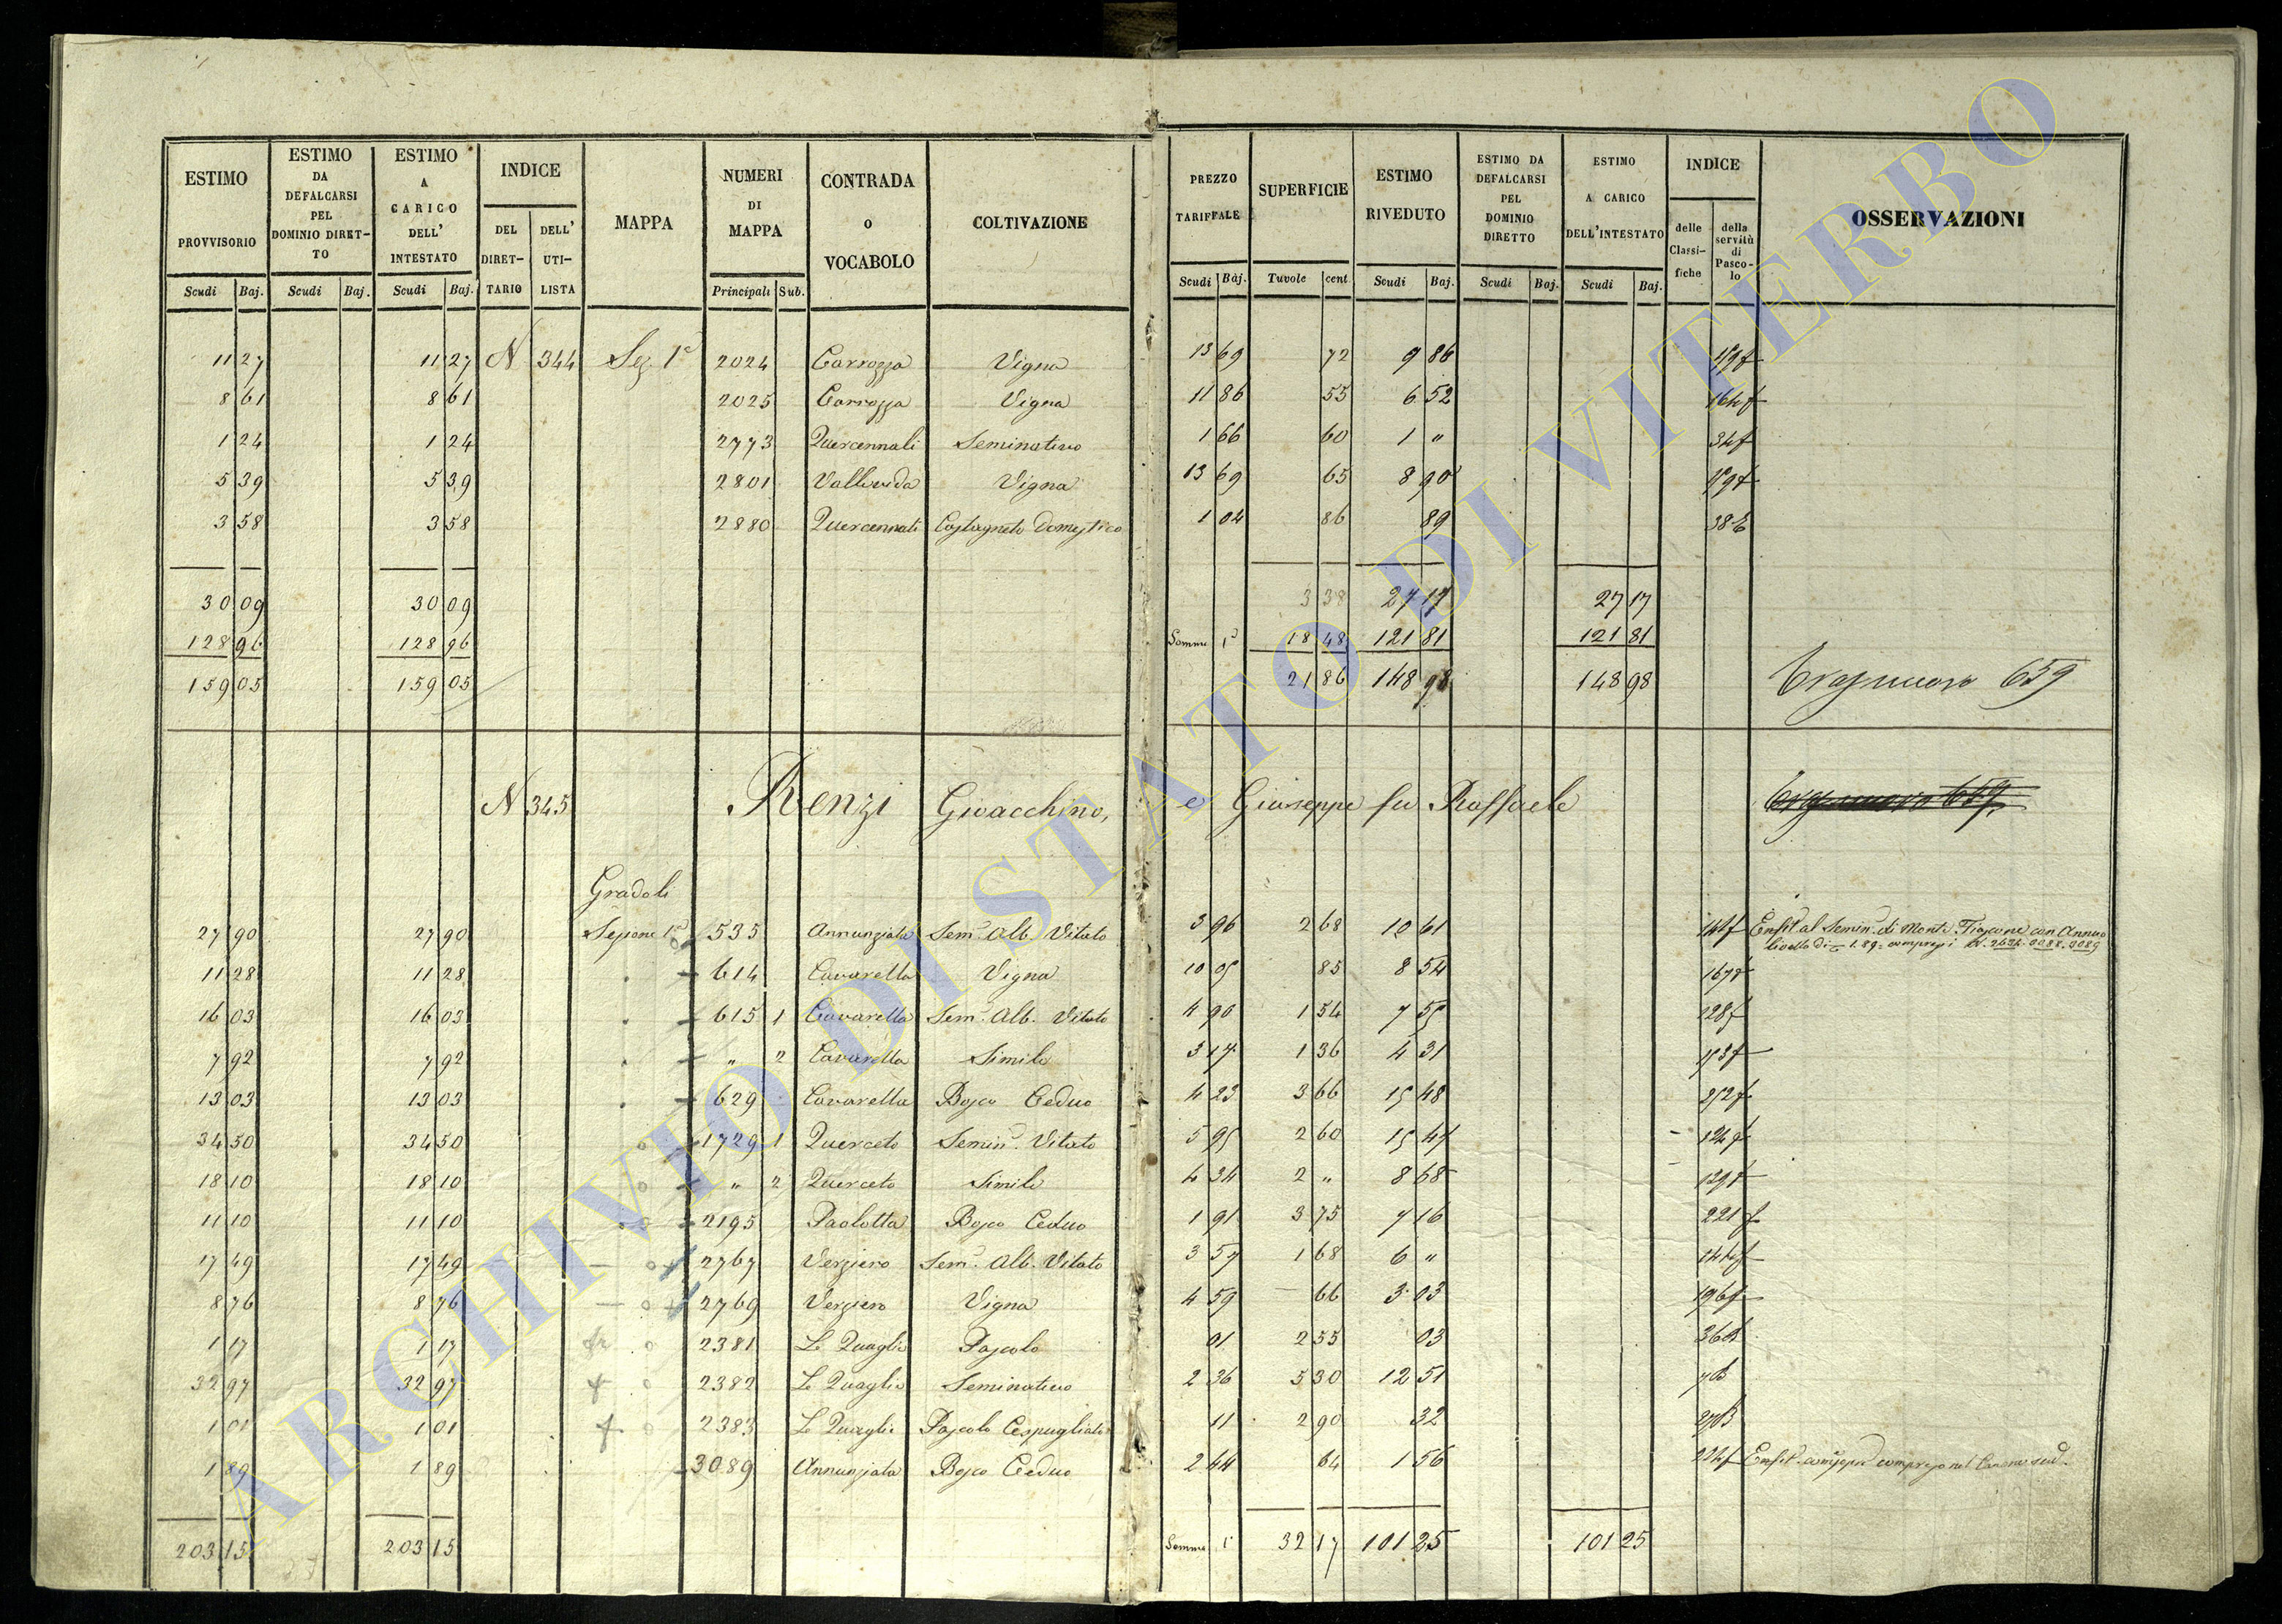 ESTIMO PROVVISORIO Scudi Baj. | ESTIMO DA DEFALCARSI PEL DOMINIO DIRET-TO Scudi Baj. | ESTIMO A CARICO DELL' INTESTATO Scudi Baj. | INDICE DEL DIRET-TARIO | DELL' UTI-LISTA | MAPPA | NUMERI DI MAPPA Principali Sub. | CONTRADA O VOCABOLO | COLTIVAZIONE | PREZZO TARIFFALE Scudi Baj. | SUPERFICIE Tavole cent | ESTIMO RIVEDUTO Scudi Baj. | ESTIMO DA DEFALCARSI PEL DOMINIO DIRETTO Scudi Baj. | ESTIMO A CARICO DELL'INTESTATO Scudi Baj. | INDICE delle Classi-fiche | della servitù di Pasco-lo | OSSERVAZIONI
11 27 11 27 N 344 Sez. 1ª 2024 Carrozza Vigna 13 69 72 9 86
8 61 8 61 2025 Carrozza Vigna 11 86 55 6 52
1 24 1 24 2773 Quercennali Seminativo 1 66 60 1 "
5 39 5 39 2801 Vigna 13 69 65 8 90
3 58 3 58 2880 Quercennali Castagneto Domestico 1 04 86 89
30 09 30 09 3 38 27 17 27 17
128 96 128 96 Somma 18 48 121 81 121 81
159 05 159 05 21 86 148 98 148 98 659
N 345 Renzi Gioacchino, e Giuseppe fu Raffaele
Gradoli
27 90 27 90 Sezione 1ª 535 Annunziata Sem. Alb. Vitato 3 96 2 68 10 61 Enfit. al Semin. di Monte Fiascone con Annuo
11 28 11 28 614 Cavarella Vigna 10 05 85 8 54
16 03 16 03 615 1 Cavarella Sem. Alb. Vitato 4 90 1 54 7 55
7 92 7 92 " 2 Cavarella Simile 3 17 1 36 4 31
13 03 13 03 629 Cavarella Bosco Ceduo 4 23 3 66 15 48
34 50 34 50 1729 1 Querceto Semin. Vitato 5 95 2 60 15 47
18 10 18 10 " 2 Querceto Simile 4 34 2 " 8 68
11 10 11 10 2195 Paolotta Bosco Ceduo 1 91 3 75 7 16 221
17 49 17 49 2767 Verziero Sem. Alb. Vitato 3 57 1 68 6 "
8 76 8 76 2769 Verziero Vigna 4 59 66 3 03
1 17 1 17 2381 Le Quaglie Pascolo 01 2 55 03
32 97 32 97 2382 Le Quaglie Seminativo 2 36 5 30 12 51
1 01 1 01 2383 Le Quaglie Pascolo Cespugliato 11 2 90 32
1 89 1 89 3089 Annunziata Bosco Ceduo 2 44 64 1 56
203 15 203 15 Somma 32 17 101 25 101 25
ARCHIVIO DI STATO DI VITERBO